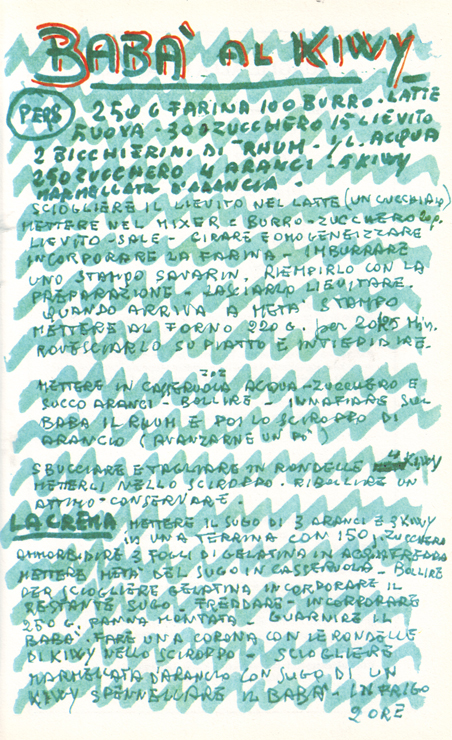 BABA' AL KIWY
PER 8 250 G FARINA 100 BURRO - LATTE
7 UOVA - 30 G ZUCCHERO 15 LIEVITO
2 BICCHIERINI DI RHUM - 1/2 L. ACQUA
250 ZUCCHERO 4 ARANCI - 5 KIWY
MARMELLATA D'ARANCIA -
SCIOGLIERE IL LIEVITO NEL LATTE (UN CUCCHIAIO)
METTERE NEL MIXER E BURRO - ZUCCHERO
LIEVITO - SALE - GIRARE E OMOGENEIZZARE
INCORPORARE LA FARINA - IMBURRARE
UNO STAMPO SAVARIN, RIEMPIRLO CON LA
PREPARAZIONE - LASCIARLO LIEVITARE.
QUANDO ARRIVA A META' STAMPO
METTERE AL FORNO 220 G. per Min.
ROVESCIARLO SU PIATTO E INTIEPIDIRE.
METTERE IN CASSERUOLA ACQUA - ZUCCHERO E
SUCCO ARANCI - BOLLIRE - INNAFIARE SUL
BABA IL RHUM E POI LO SCIROPPO DI
ARANCIO (AVANZARNE UN PO')
SBUCCIARE E TAGLIARE IN RONDELLE 4 KIWY
METTERLI NELLO SCIROPPO - RIBOLLIRE UN
ATTIMO - CONSERVARE -
LA CREMA METTERE IL SUGO DI 3 ARANCI E 3 KIWY
IN UNA TERRINA CON 150 g. ZUCCHERO
AMMORBIDIRE 3 FOGLI DI GELATINA IN ACQUA FREDDA
METTERE META' DEL SUGO IN CASSERUOLA - BOLLIRE
PER SCIOGLIERE GELATINA INCORPORARE IL
RESTANTE SUGO - FREDDARE - INCORPORARE
250 G. PANNA MONTATA - GUARNIRE IL
BABA' - FARE UNA CORONA CON LE RONDELLE
DI KIWY NELLO SCIROPPO - SCIOGLIERE
MARMELLATA D'ARANCIO CON SUGO DI UN
KIWY SPENNELLARE IL BABA' - IN FRIGO
2 ORE